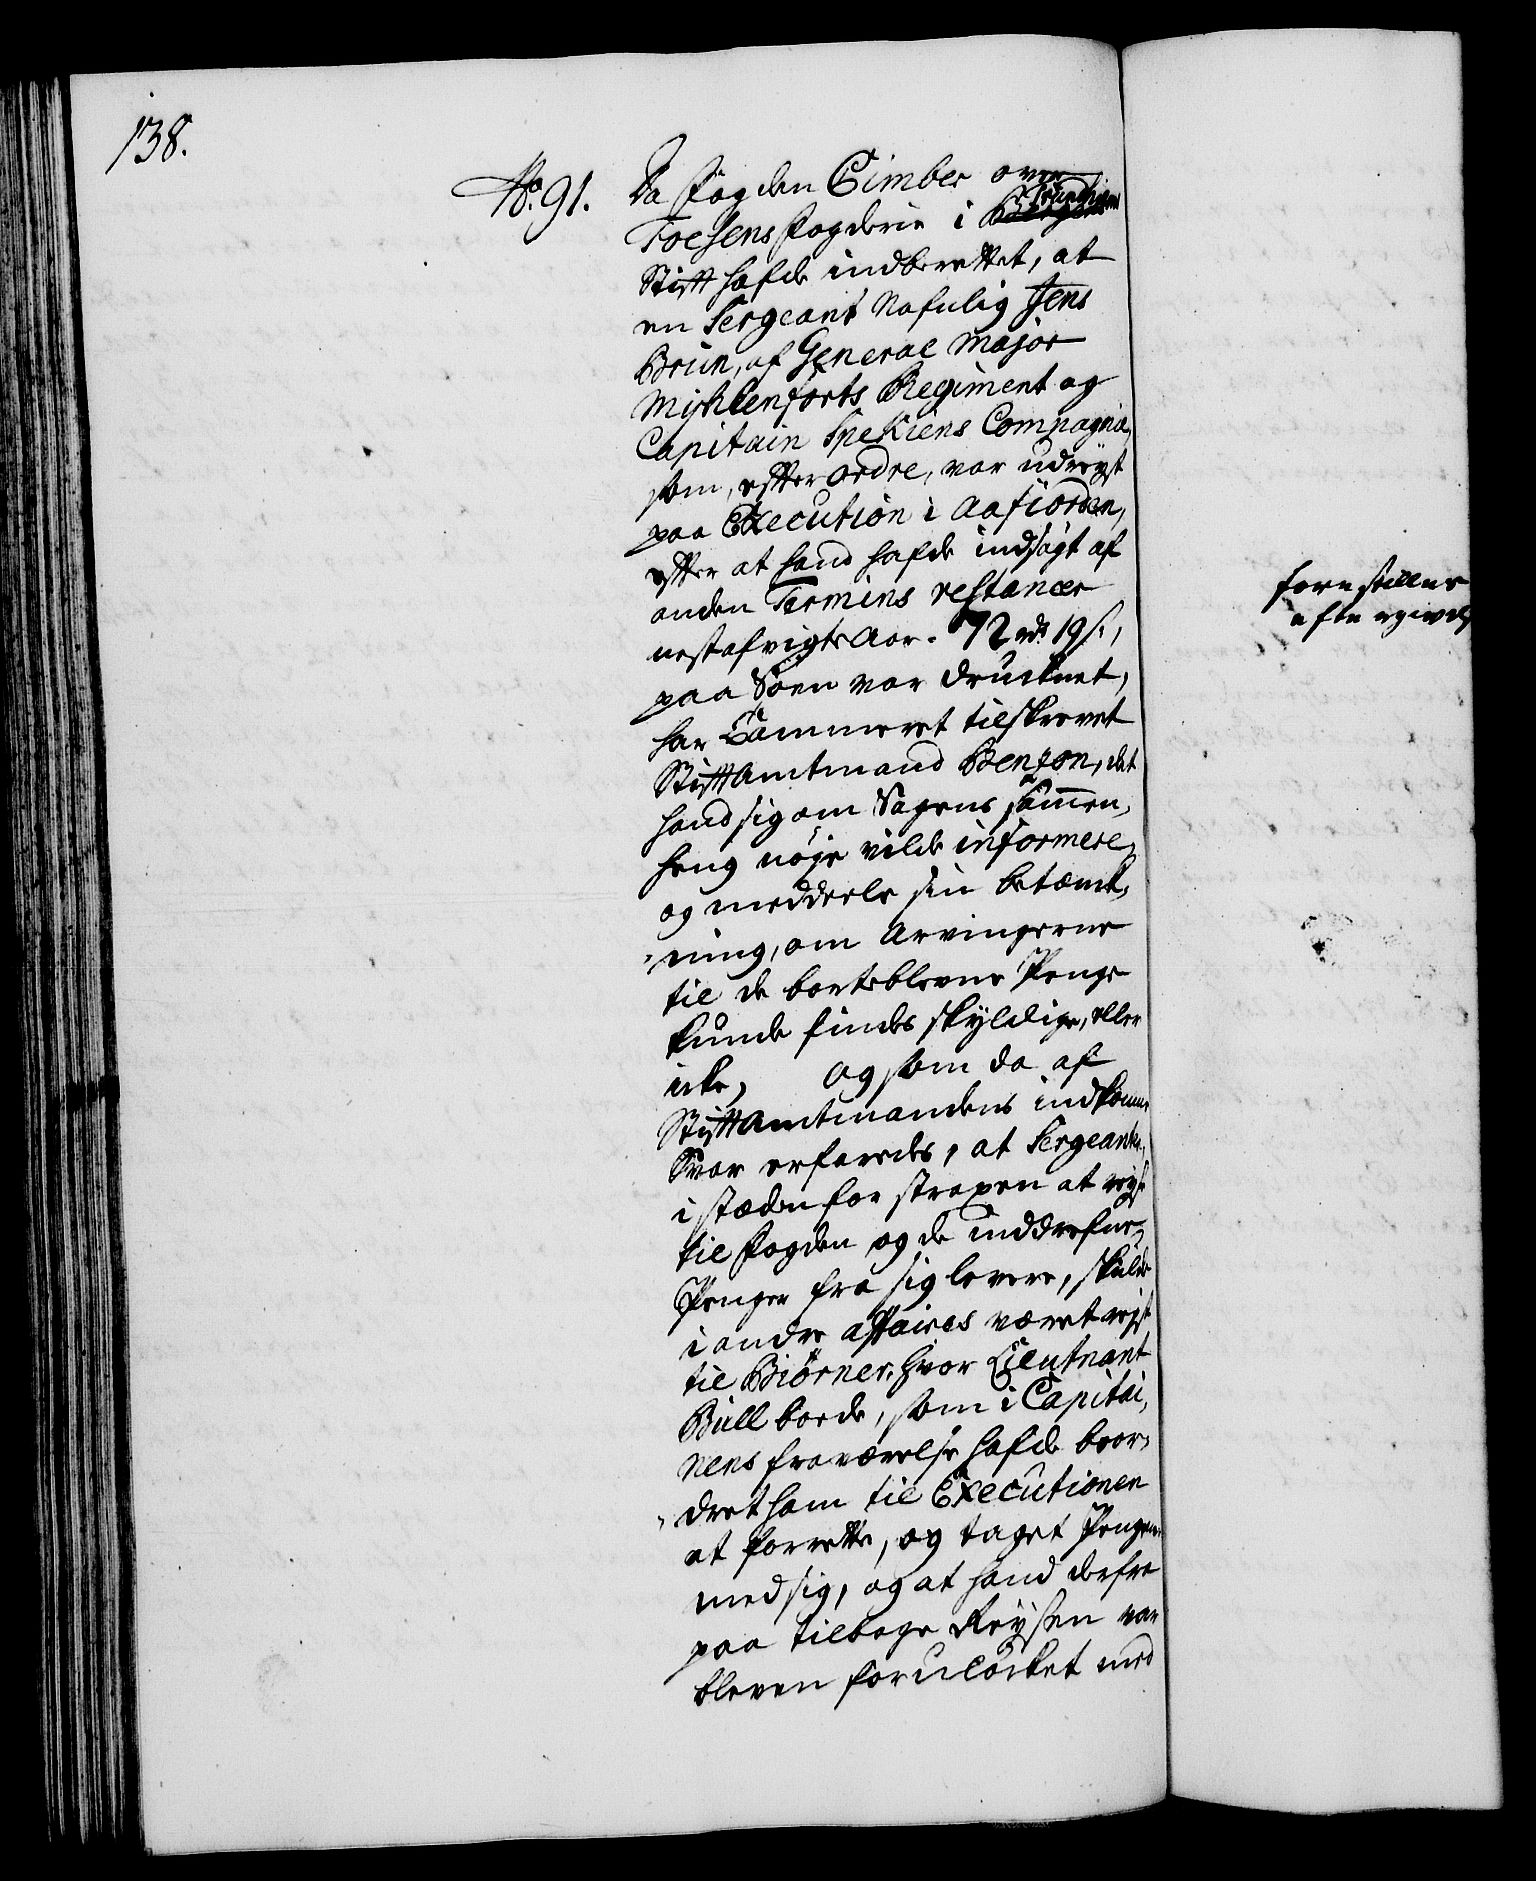 138.
No. 91. Da Fogden Cimber over
Foesens Fogderie i Trundhiems
Stift hafde indberettet, at
en Sergeant Nafnlig Jens
Brun, af General Major
Myhlenforts Regiment og
Capitain Spekiens Compagnie,
som, efter ordre, var udreyst
paa Execution i Aafiorden,
efter at hand hafde indsögt af
anden Termins restancer
nestafvigte Aar. 72 rdr 19 s.,
paa Söen var drucknet,
har Cammeret tilskrevet
Stiftamtmand Benzon, det
hand sig om Sagens samen-
heng nöje vilde informere,
og meddeele sin betænk-
ning, om Arvingerne
til de bortblevne Penge
kunde findes skyldige, eller
icke, og som da af
Stiftamtmandens indkomne
Svar erfaredes, at Sergeanten,
i stæden for strapen at reyse
til Fogden og de inddrefne
Penger fra sig levere, skulde
i andre affaires været rejst
til Biörner, hvor Lieutnant
Bull boede, som i Capitai-
nens fraværelse hafde beor-
dret ham til Executionen
at forrette, og taget Pengene
med sig, og at hand derfra
paa tilbage Reysen var
bleven forulöcket med
forestilles
eftergivels